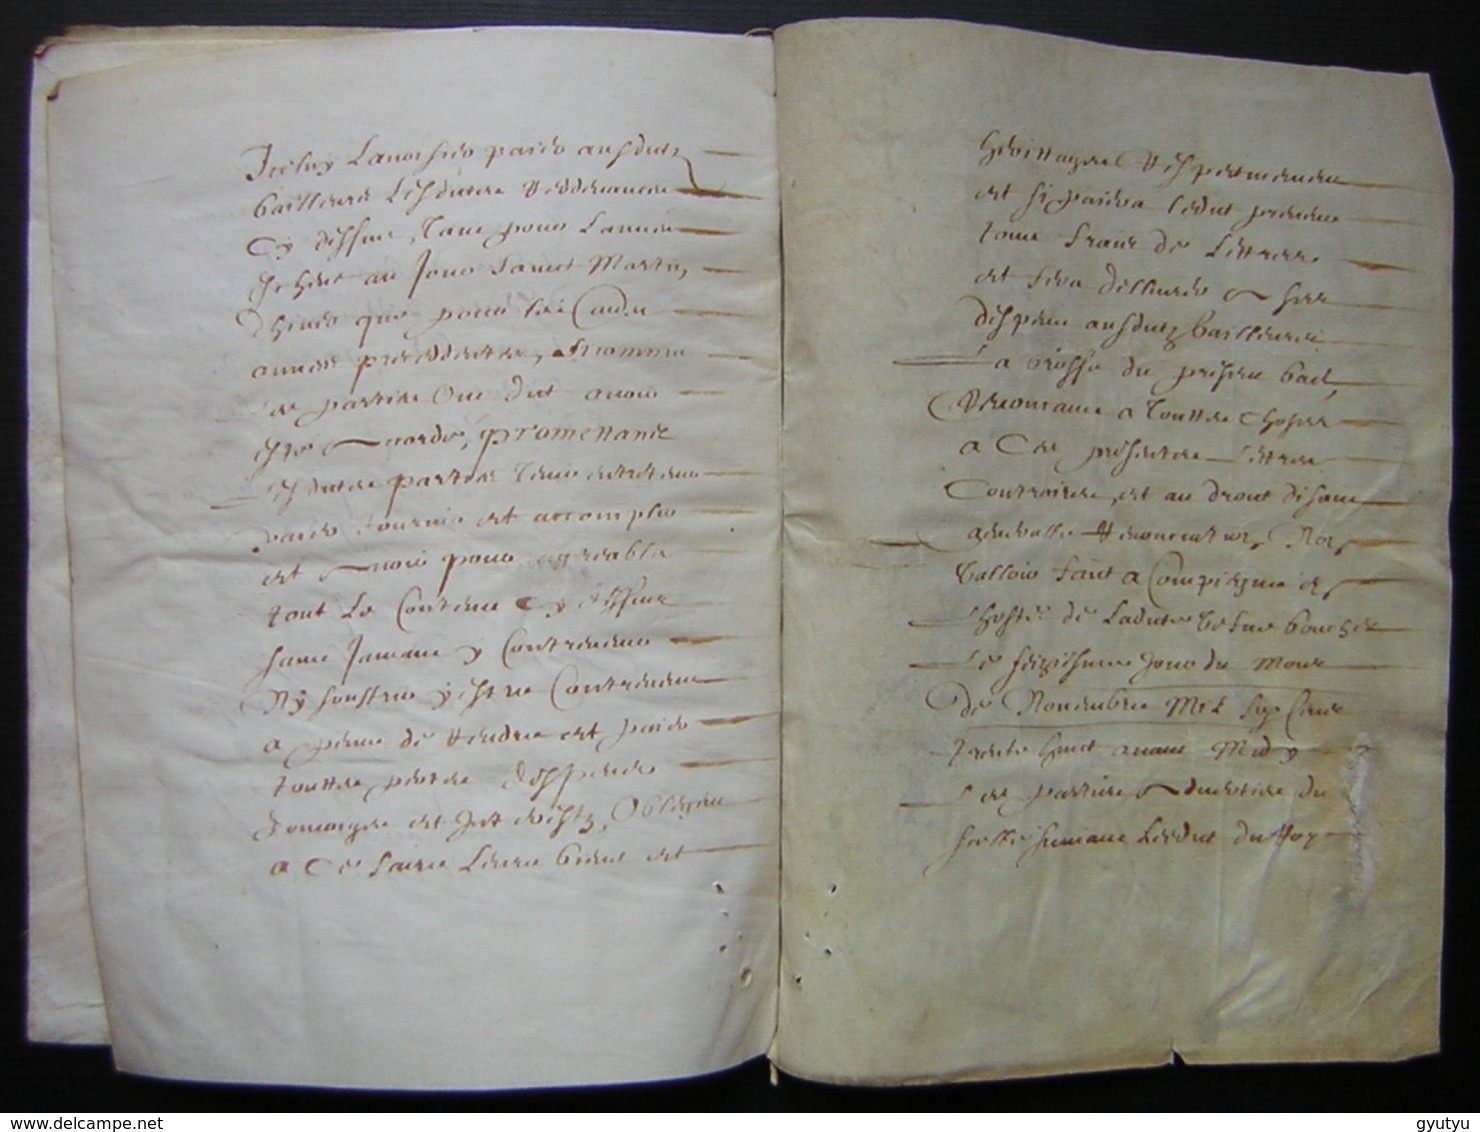 Iceluy Lanoisier paier ausdits
bailleurs lesdites redevances
Cy dessus, tant pour l'année
escheue au jour sainct Martin
dhiver que pour les
années precedentes,
les parties ont dit avoir
esté accordé, promettans
lesdites parties tenir entretenir
paier fournir et accomplir
et avoir pour agreable
tout le Contenu Cy dessus
sans jamais y Contrevenir
Ny souffrir y estre Contrevenu
a peine de rendre et paier
touttes pertes despens
domaiges et Interestz, Obligeans
a Ce faire leurs biens et
heritages respectivement
et si paiera ledit preneur
tous fraiz de Lettres
et sera delivrer a ses
despens ausdits bailleurs
la grosse du present bail,
Renonceans a touttes choses
a Ces presentes Lettres
Contraires, et au droit disant
generalle Renonciation Non
valloir faict a Compiegne en
lhostel de ladite veufve bouchel
Le seiziesme jour du Mois
de Novembre Mil six Cens
trente huict avant Midy
Les parties adverties du
scel suivant l'edict du Roy
gyutyu
delcampe.net
gyutyu